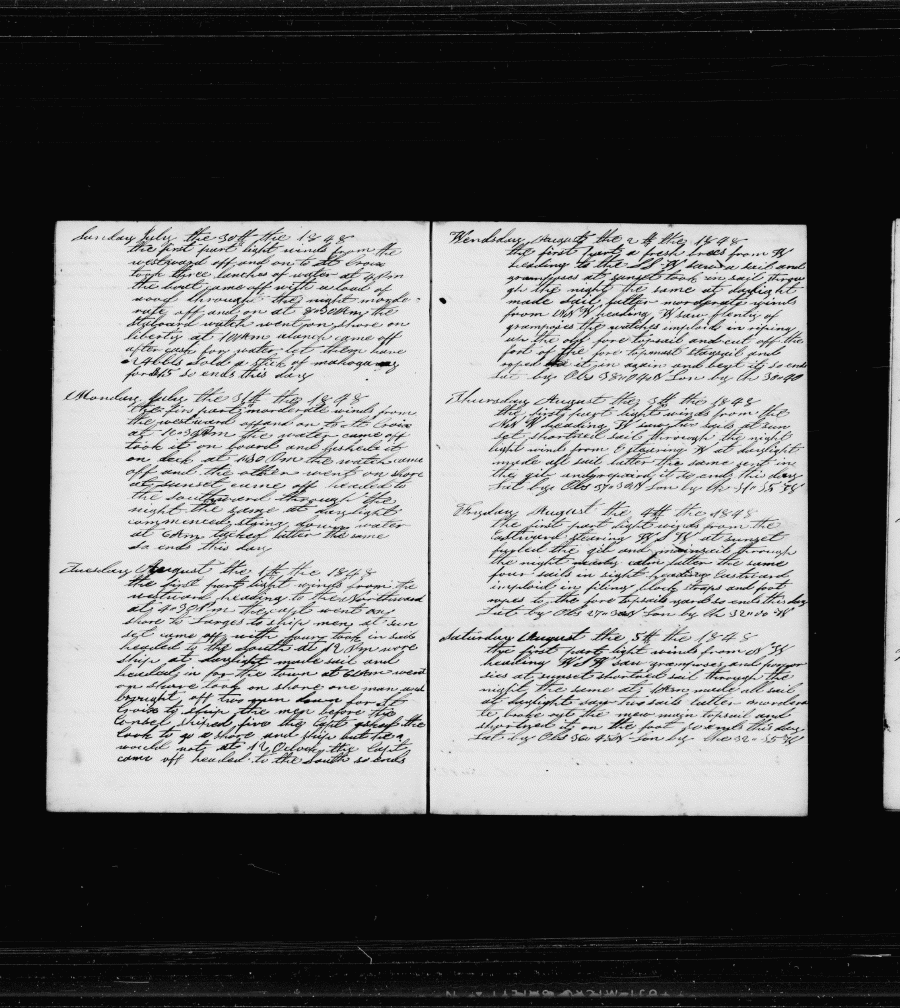 Sunday July the 30th the 1848
the first part light winds from the
westward off and on to St Croix
took three lunches of water at 4 Pm
the boat came off with a load of
wood through the night morde
rate off and on at 8=30 Am the
starboard watch went on shore on
liberty at 10 Am a lanch came off
after cash for water let them have
sold a stick of mahogany
for $15 so ends this day
Monday July the 31th the 1848
the firs part morderate winds from
the westward off and on to St Croix
at the water came off
took it on board and
on deck at 1=30 Pm the watch came
off and the other went on shore
at sunset came off headed to
the southward through the
night the same at daylight
commenced stoing down water
at 6 Am tacked latter the same
so ends this day
Tuesday August the 1th the 1848
the first part light winds from the
westward heading to the Northward
at 4=30 Pm the capt went on
shore to Larges to ship men at sun
set came off with four took in sails
headed to the south at 12 Pm wore
ship at daylight made sail and
headed in for the town at 6 Am went
on shore long on shore one man and
brought off two men from St
Croix to ship the men before the
Consel shiped five the Capt
took to go a shore and ship but he
would not at 12 Oclock the Capt
came off headed to the South so ends
Wendsday August the 2th the 1848
the first part a fresh brees from W
heading to the SSW saw a sail and
grampuses at sunset took in sail throu
gh the night the same at daylight
made sail latter morderate winds
from NNW heading W saw plenty of
grampuses the watches imploid in riping
up the old fore topsail and cut off the
foot of the fore topmast staysail and
roped it in again and bent it so ends
Lat by Obs Lon by Ch
Thursday August the 3th the 1848
the first part light winds from the
NNW heading W saw two sails at sun
set shortned sail through the night
light winds from E stearing W at daylight
made all sail latter the same sent in
the gib and it so ends this day
Lat by Obs Lon by Ch W
Friday August the 4th the 1848
the first part light winds from the
eastward stearing WSW at sunset
furled the gib and mainsail through
the night nearly calm latter the same
four sails in sight heading Eastward
imploid in fiting block straps and foot
ropes to the fore topsail yard so ends this day
Lat by Obs Lon by Ch W
Saturday August the 5th the 1848
the first part light winds from N W
heading WSW saw grampuses and porpoi
sies at sunset shortned sail through the
night the same at made all sail
at daylight saw two sails latter mordera
te broke out the new main topsail and
so ends this day
Lat by Obs Lon by the W